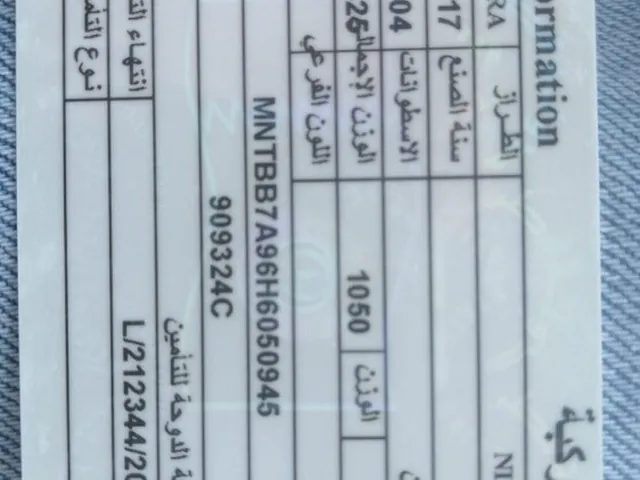 ormation
كية
RA
الطراز
NI
17
سنة الصنع
04
الاسطوانات
25
الوزن الاجمالي
1050
الوزن
اللون الفرعي
MNTBB7A96H6050945
909324C
ة الدوحة للتأمين
انتهاء الت
L/212344/20
نوع التأم